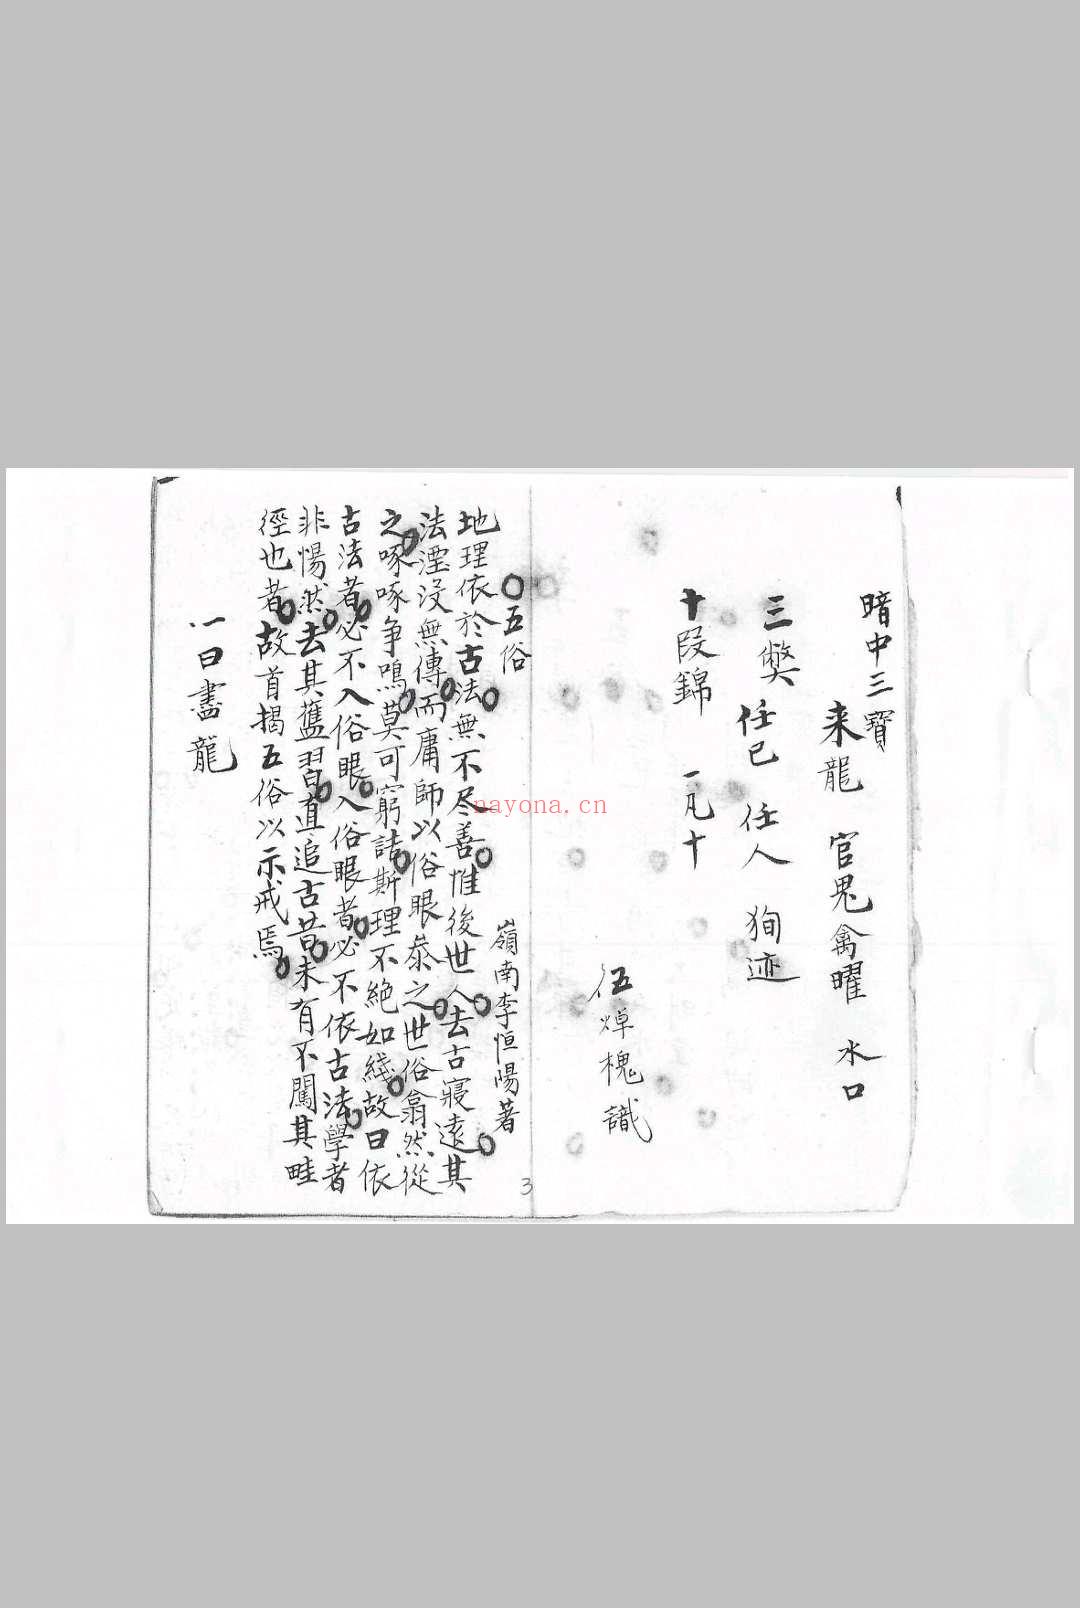 暗中三寶
来龍 官鬼禽曜 水口
三獘
任已 任人 狥迹
十段錦 一凡十
伍焯槐識
五俗
嶺南李恒陽著
地理依於古法無不尽善惟後世人去古寝遠其
法湮没無傳而庸師以俗眼叅之世俗翕然從
之啄啄争鳴莫可窮詰斯理不絶如綫故曰依
古法者必不入俗眼入俗眼者必不依古法學者
非惕然去其舊習直追古昔未有不闖其畦
徑也者故首揭五俗以示戒焉
一曰畫龍
3
nayona.cn